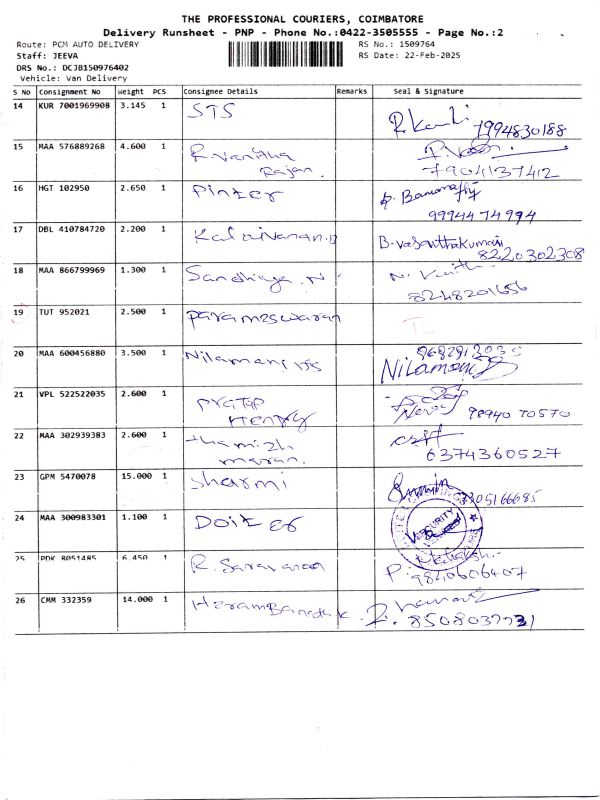 THE PROFESSIONAL COURIERS, COIMBATORE
Delivery Runsheet - PNP - Phone No.:0422-3505555 - Page No.:2
Route: PCM AUTO DELIVERY
RS No.: 1509764
Staff: JEEVA
RS Date: 22-Feb-2025
DRS No.: DCJB150976402
Vehicle: Van Delivery
S No Consignment No Weight PCS Consignee Details Remarks Seal & Signature
14 KUR 7001969908 3.145 1 STS
7994830188
15 MAA 576889268 4.600 1 R. Vanitha
Rajan.
7904137412
16 HGT 102950 2.650 1 Pinter
9994474994
17 DBL 410784720 2.200 1 Kalaivanan. B-Vasanthakumari
8220302308
18 MAA 866799969 1.300 1 Sandhiya. N
8248201656
19 TUT 952021 2.500 1 Parameswaran
20 MAA 600456880 3.500 1 Nilamani
Nilamani
21 VPL 522522035 2.600 1 Pratap
Henry
98940 70570
22 MAA 302939383 2.600 1 thamizh
maran.
6374360527
23 GPM 5470078 15.000 1 Sharmi
24 MAA 300983301 1.100 1 Doiter
SECURITY
25 PDK 8051485 6.450 1 R. Saravanan
P. 9840606407
26 CMM 332359 14.000 1
8508037731